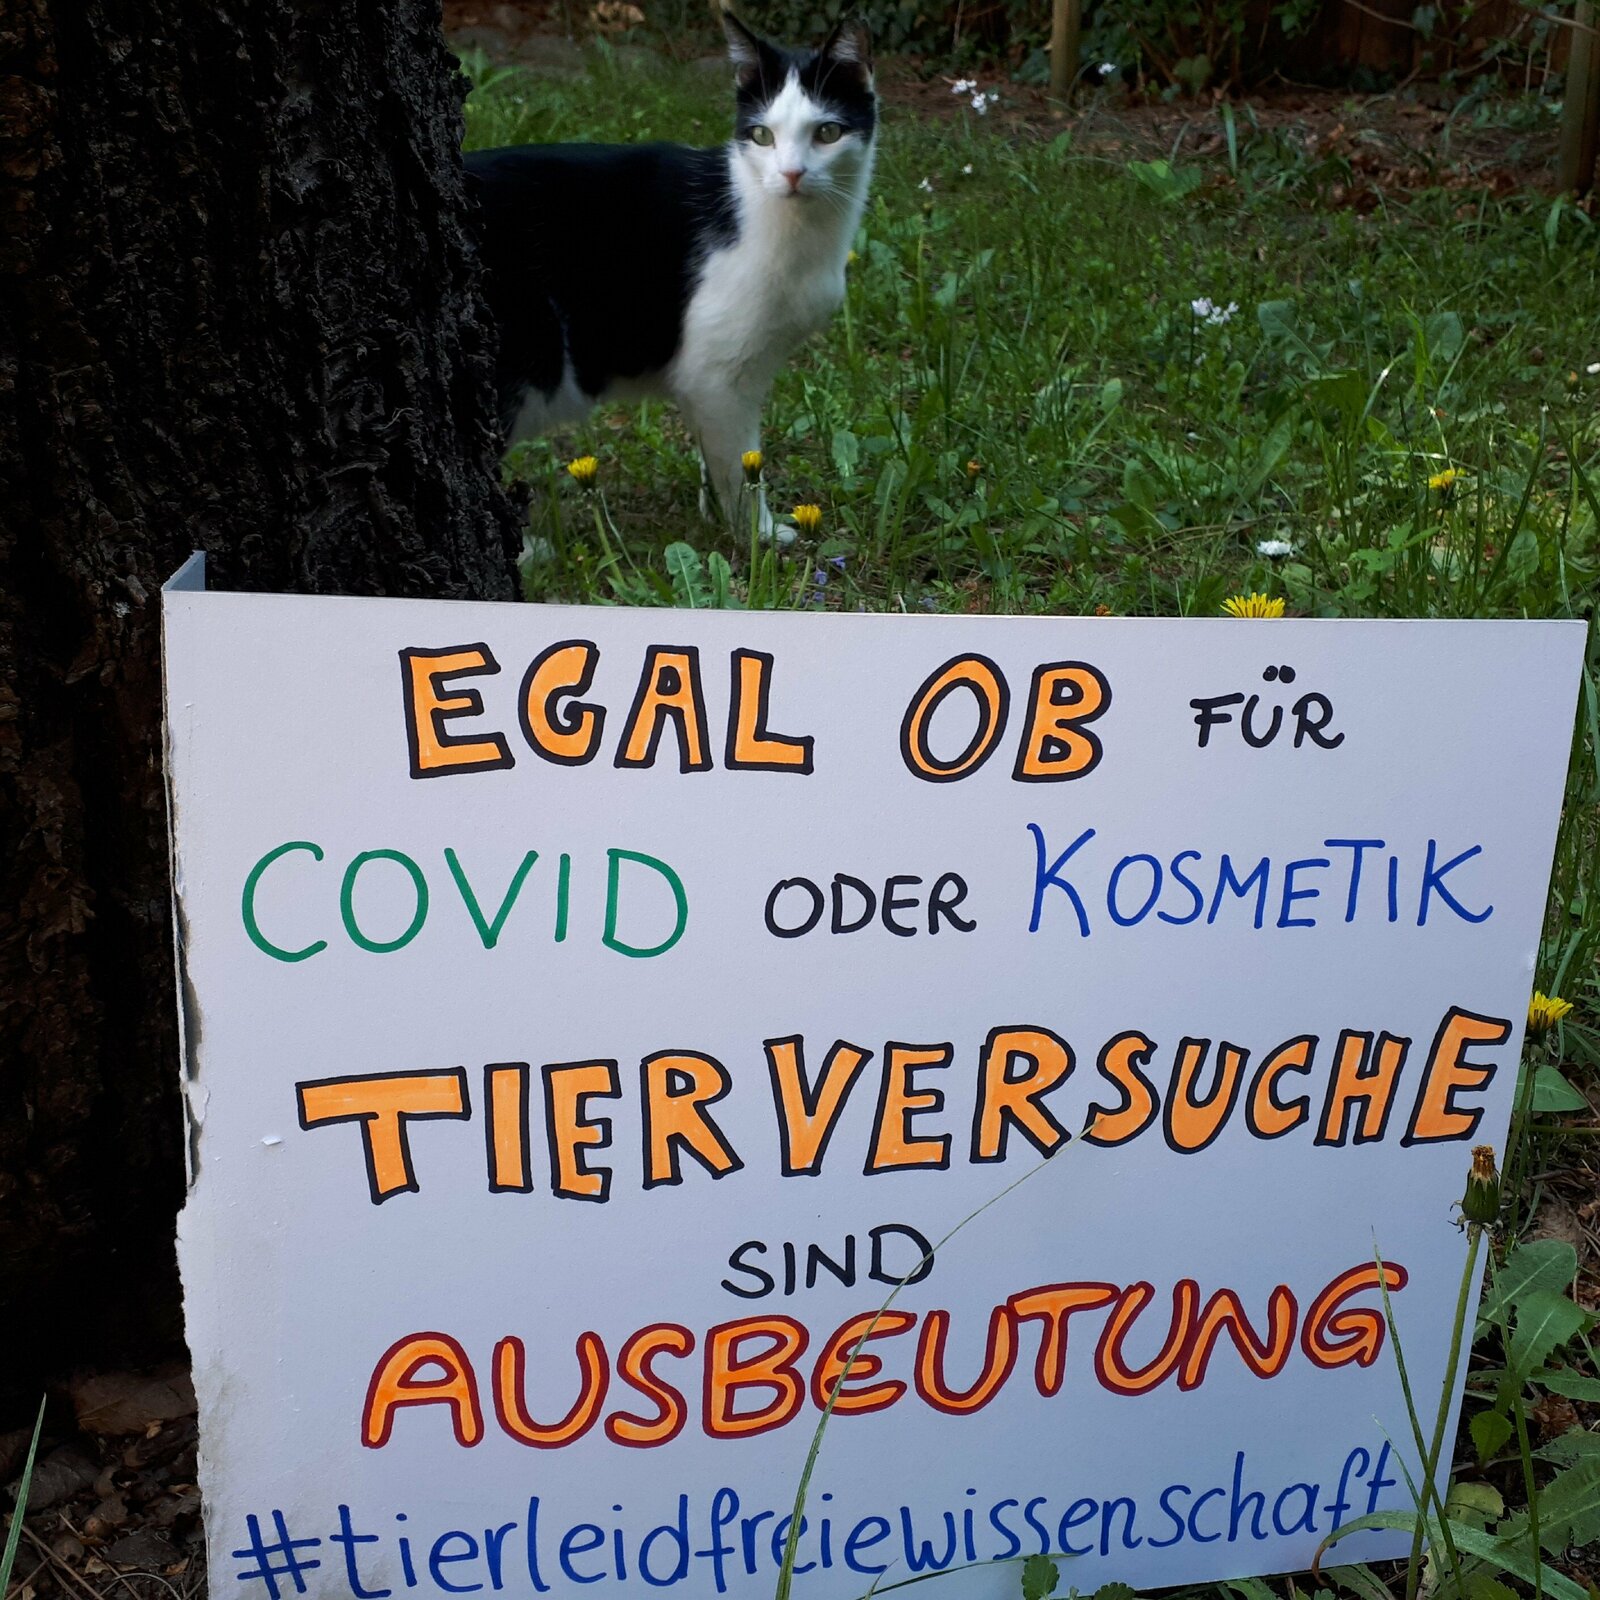 EGAL OB FÜR
COVID ODER KOSMETIK
TIERVERSUCHE
SIND
AUSBEUTUNG
#tierleidfreiewissenschaft